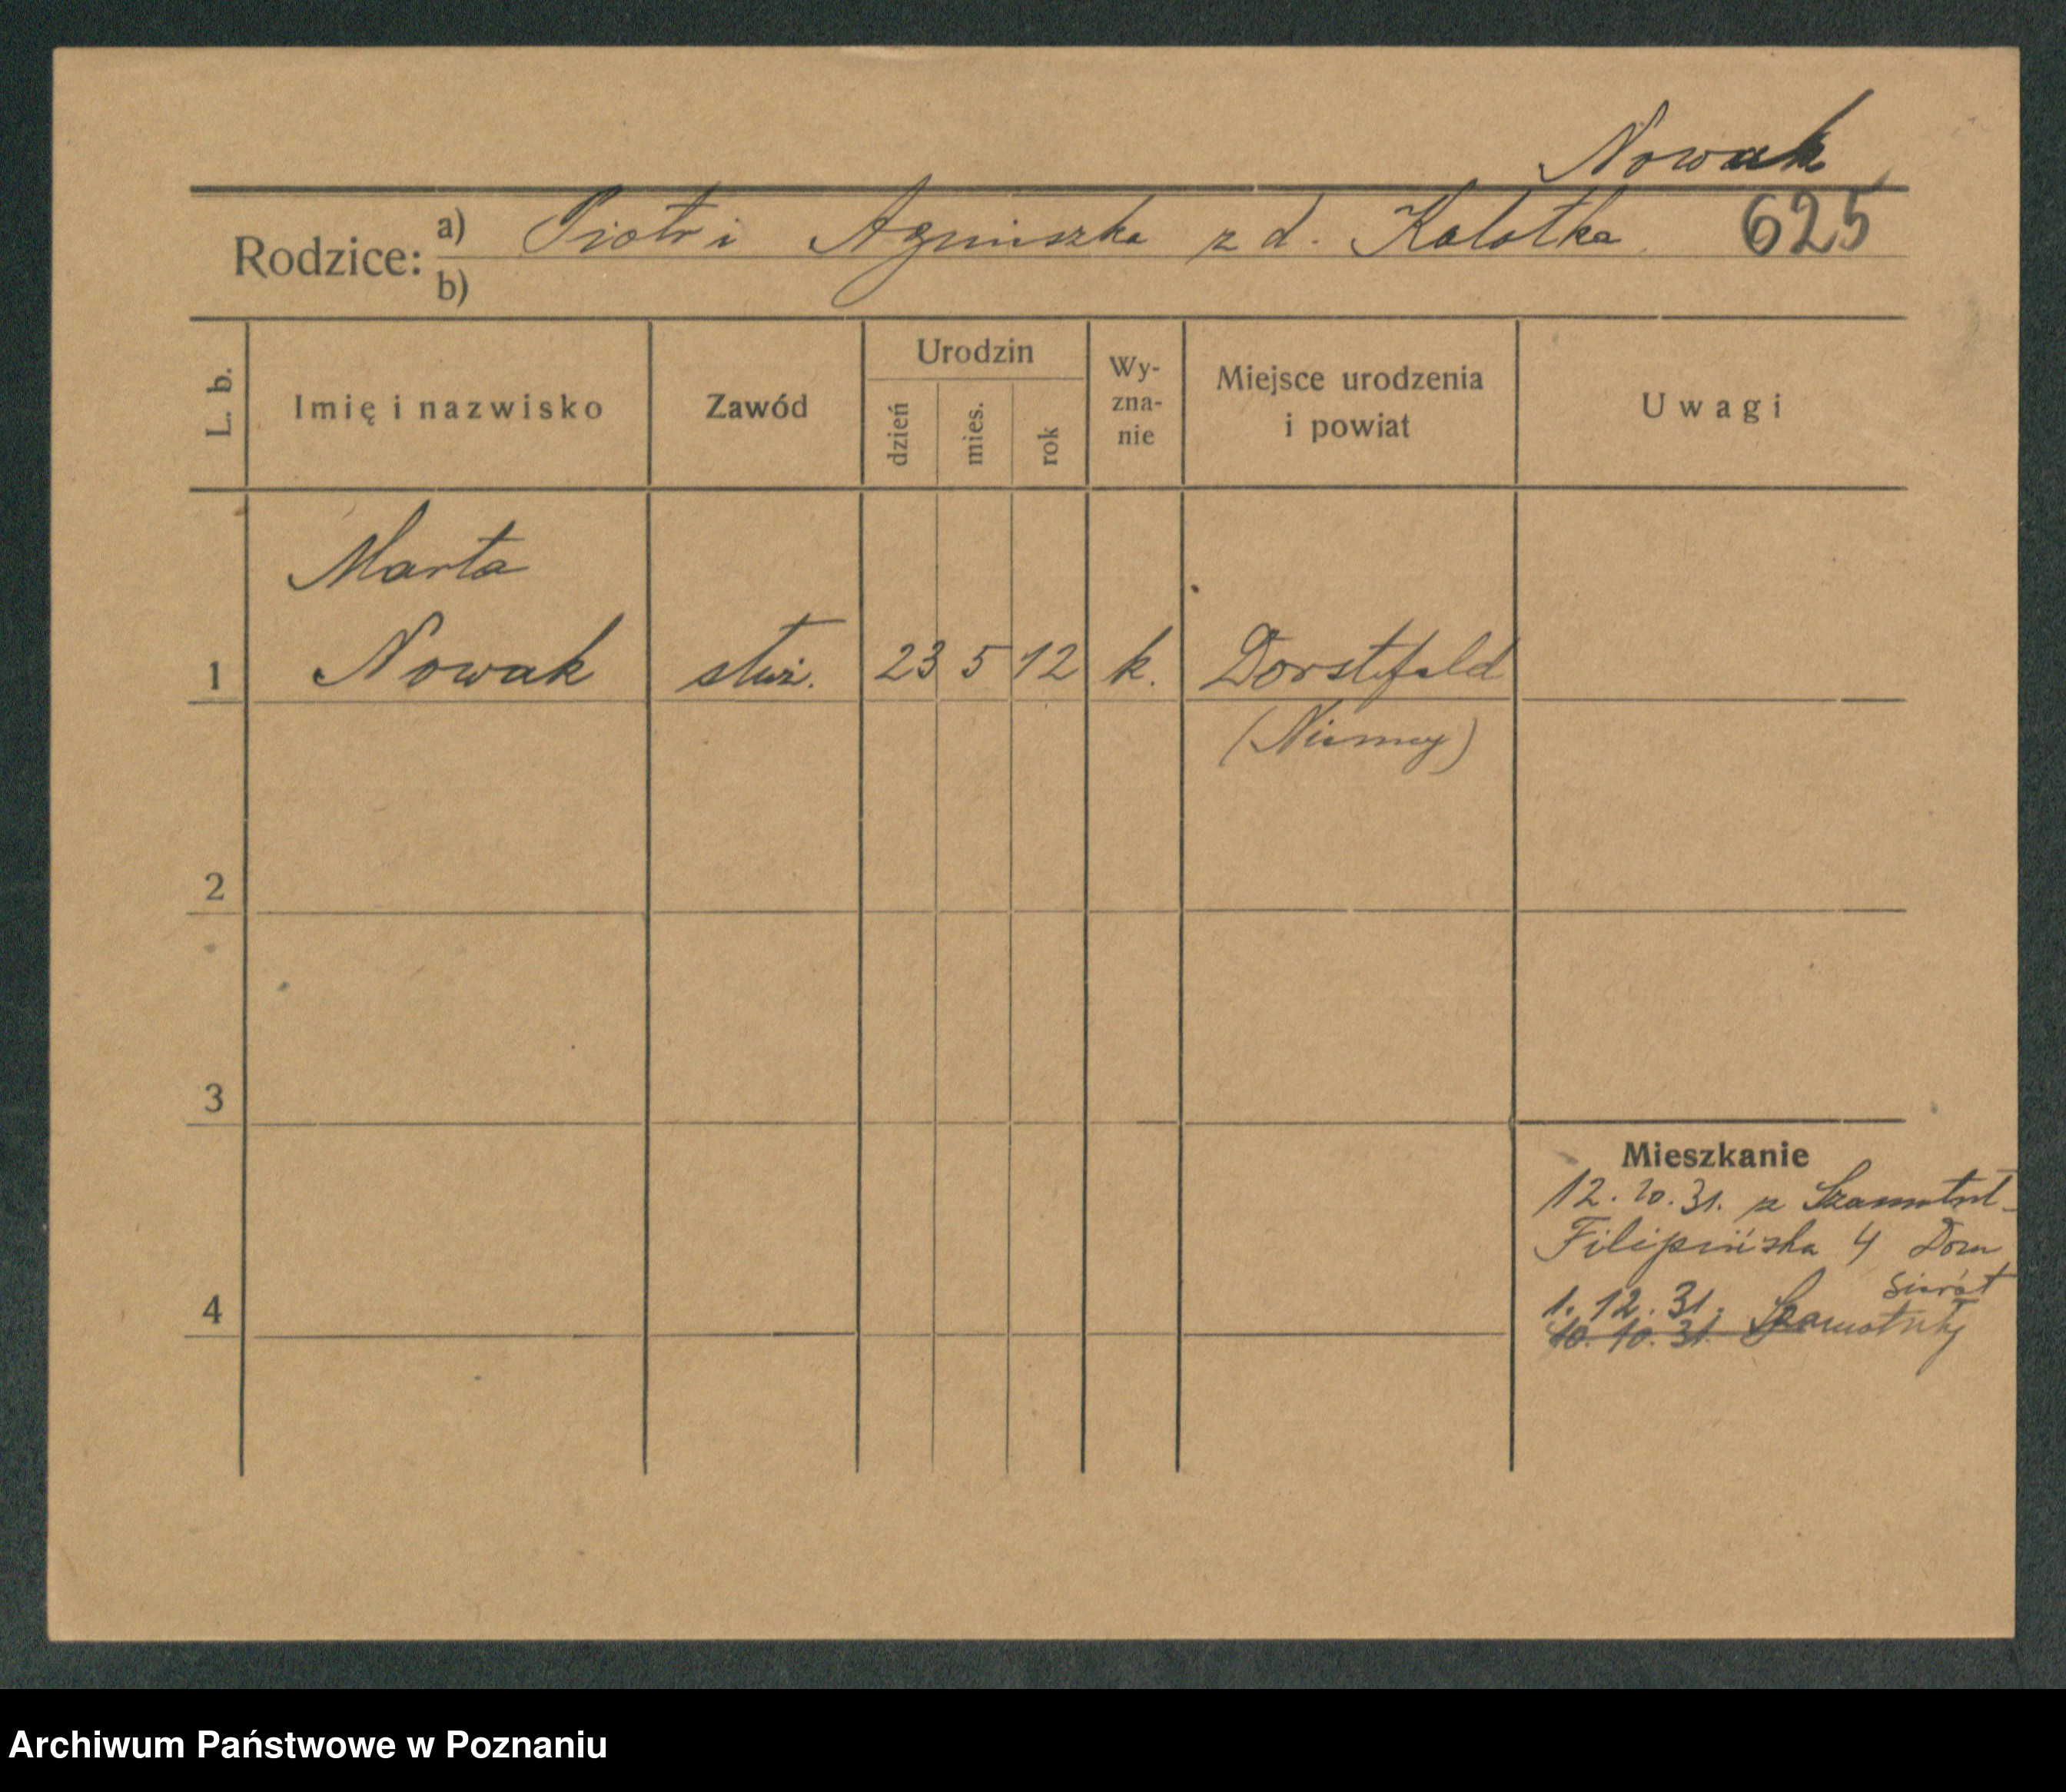 Nowak
Rodzice: a) Piotr i Agnieszka z d. Kalotka 625
b)
L. b. Imię i nazwisko Zawód Urodzin dzień mies. rok Wy-zna-nie Miejsce urodzenia i powiat Uwagi
Marta
1 Nowak służ. 23 5 12 k. Dorstfeld
(Niemcy)
2
3
Mieszkanie
12. 10. 31. z Szamotuł
Filipińska 4 Dom
Sierót
4 1. 12. 31. Szamotuły
10. 10. 31.
Archiwum Państwowe w Poznaniu